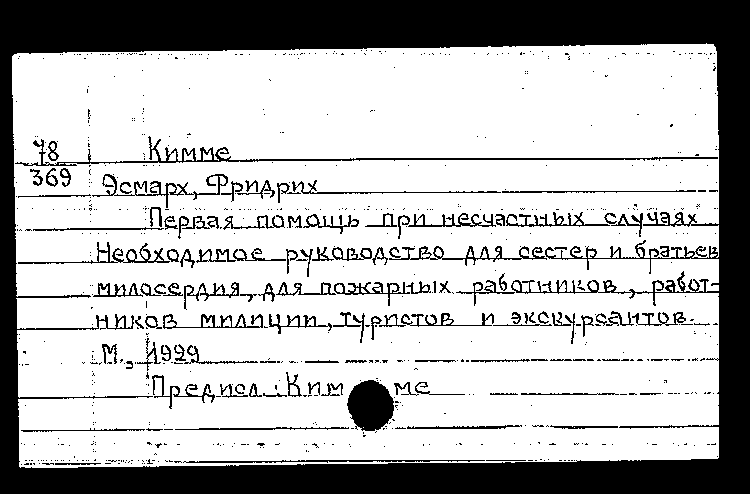 78 Кимме
369 Эсмарх, Фридрих
Первая помощь при несчастных случаях
Необходимое руководство для сестер и братьев
милосердия, для пожарных работников, работ-
ников милиции, туристов и экскурсантов.
М., 1929
Предисл.: Кимме